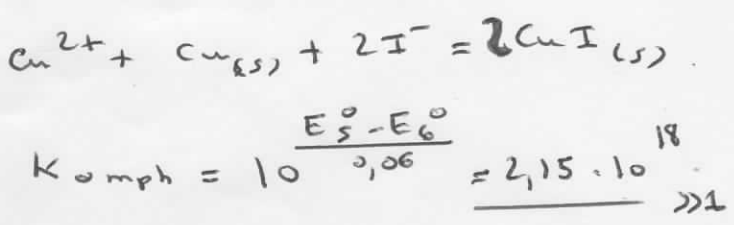 Cu²⁺ + Cu(s) + 2I⁻ = 2CuI(s).
Komph = 10^((E₅⁰-E₆⁰)/0,06) = 2,15.10¹⁸ >>1